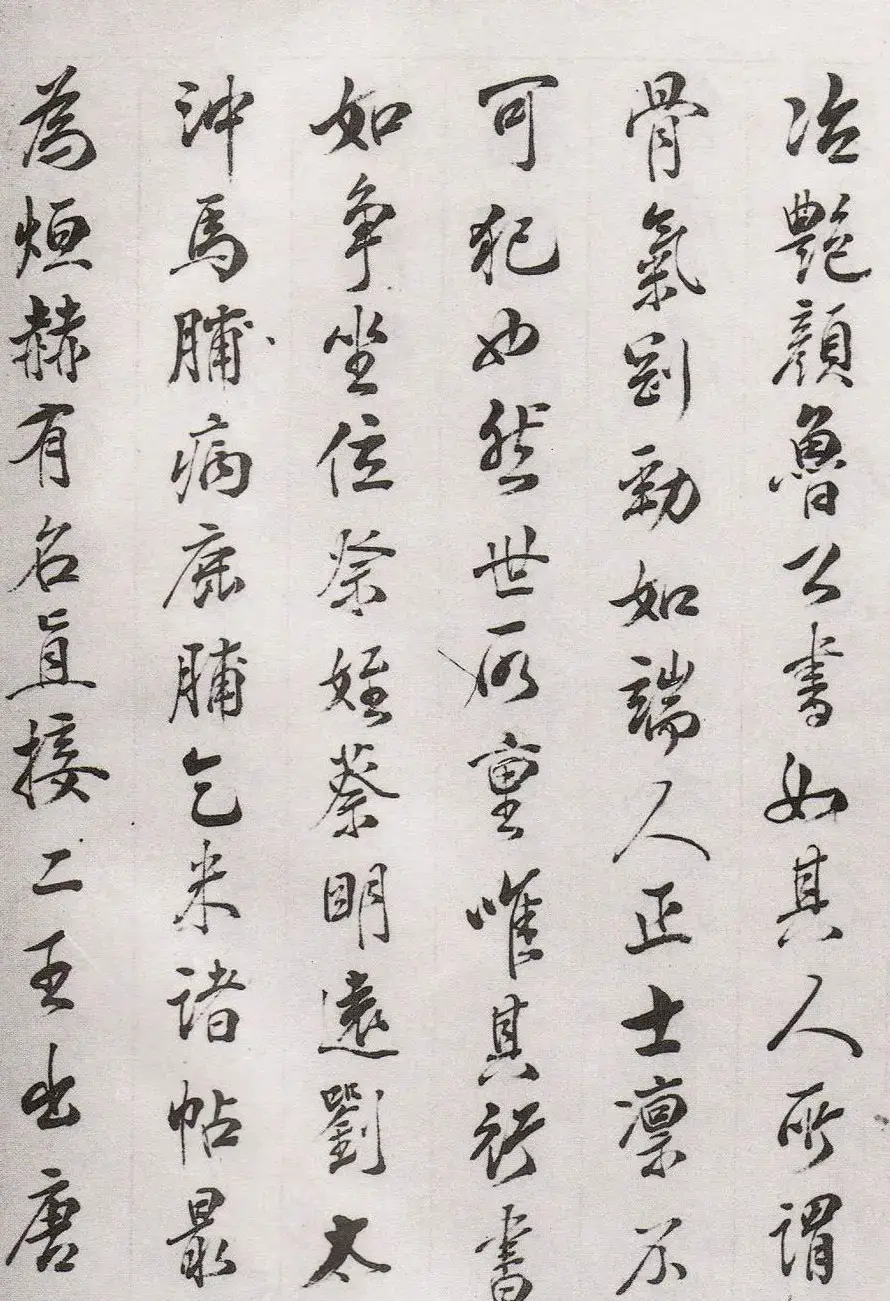 冶艷顏魯公書如其人所謂
骨氣剛勁如端人正士凛不
可犯也然世所重唯其行書
如爭坐位祭姪蔡明遠劉太
沖馬脯病鹿脯乞米諸帖最
為烜赫有名直接二王出唐